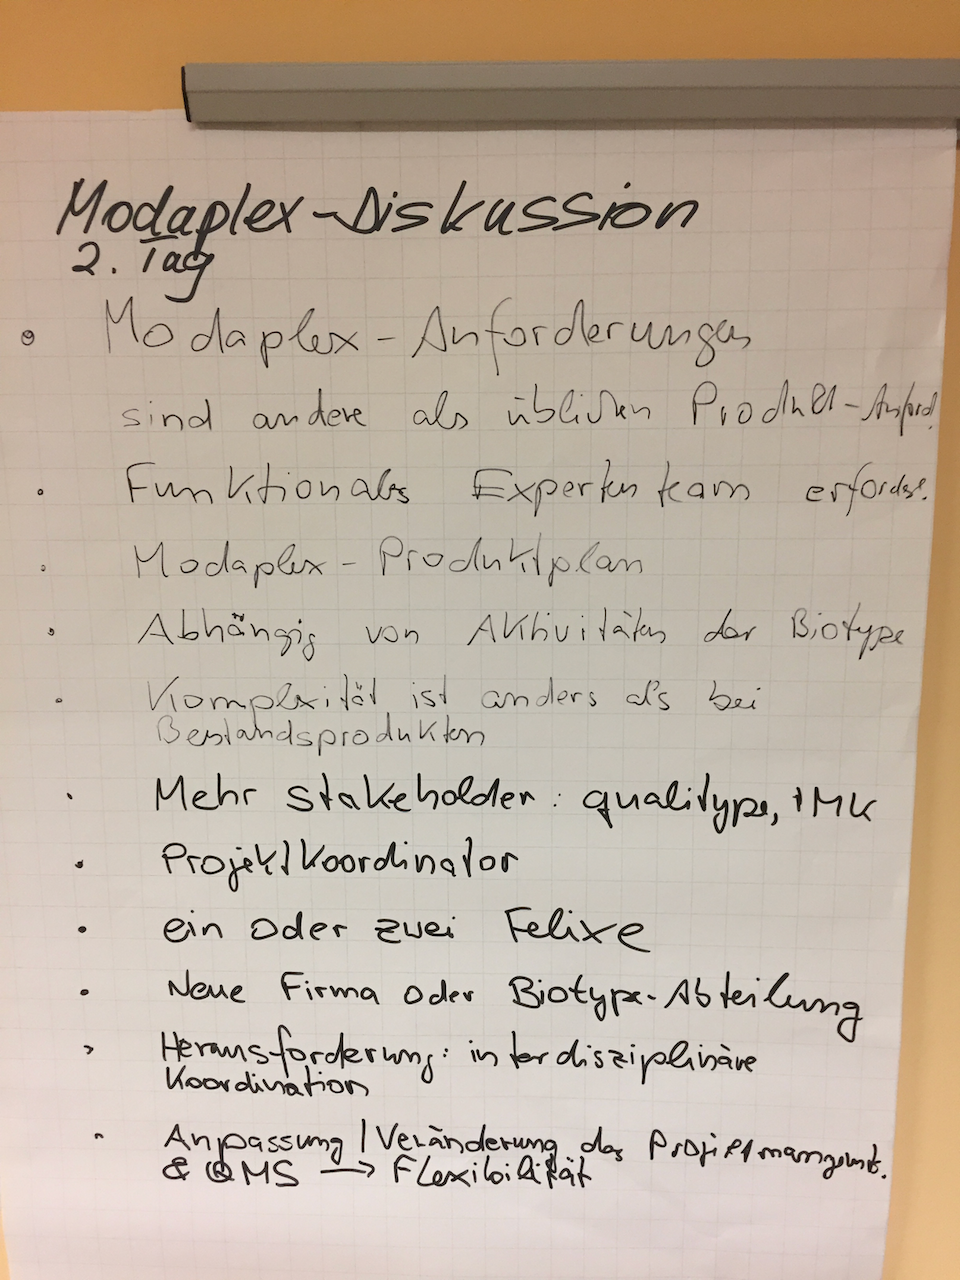 Modaplex-Diskussion
2. Tag
Modaplex-Anforderungen
sind andere als üblichen Produkt-Anford.
Funktionales Expertenteam erforderl.
Modaplex-Produktplan
Abhängig von Aktivitäten der Biotype
Komplexität ist anders als bei
Bestandsprodukten
Mehr Stakeholder: qualitype, +MK
Projektkoordinator
ein oder zwei Felixe
Neue Firma oder Biotype-Abteilung
Herausforderung: interdisziplinäre
Koordination
Anpassung/Veränderung des
& QMS → Flexibilität